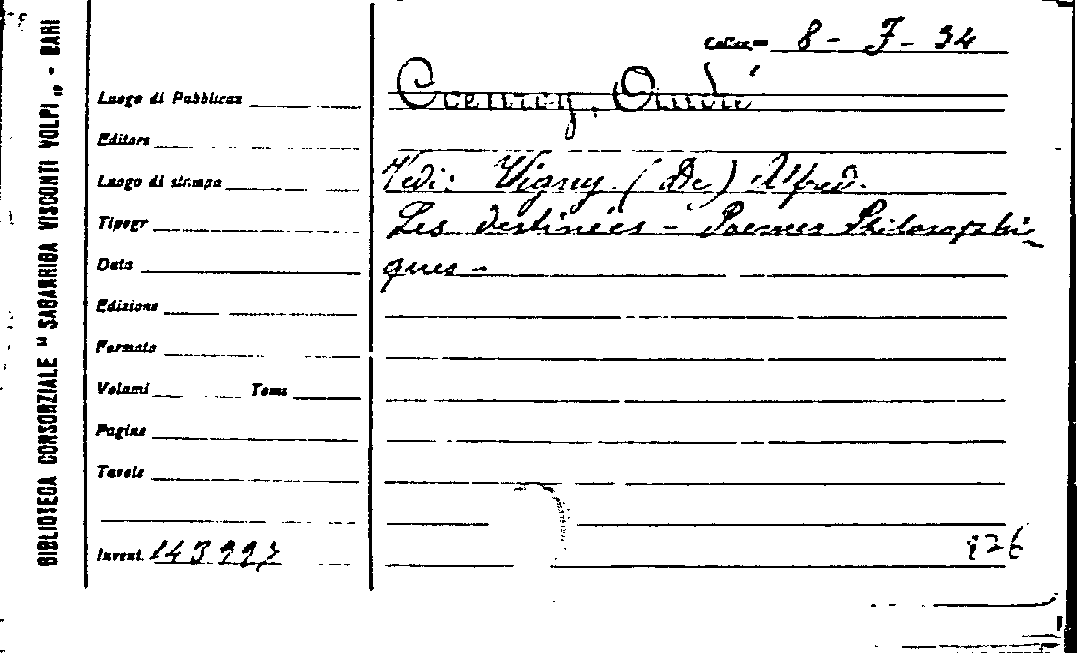 BIBLIOTECA CONSORZIALE "SAGARRIGA VISCONTI VOLPI" - BARI
Colloc. 8 - J - 34
Luogo di Pubblicaz
Editore
Luogo di stampa
Tipogr
Data
Edizione
Formato
Volumi Tomi
Pagine
Tavole
Invent. 143997
Vedi: Vigny (De) Alfred.
Les destinées - Poemes Philosophi-
ques -
126